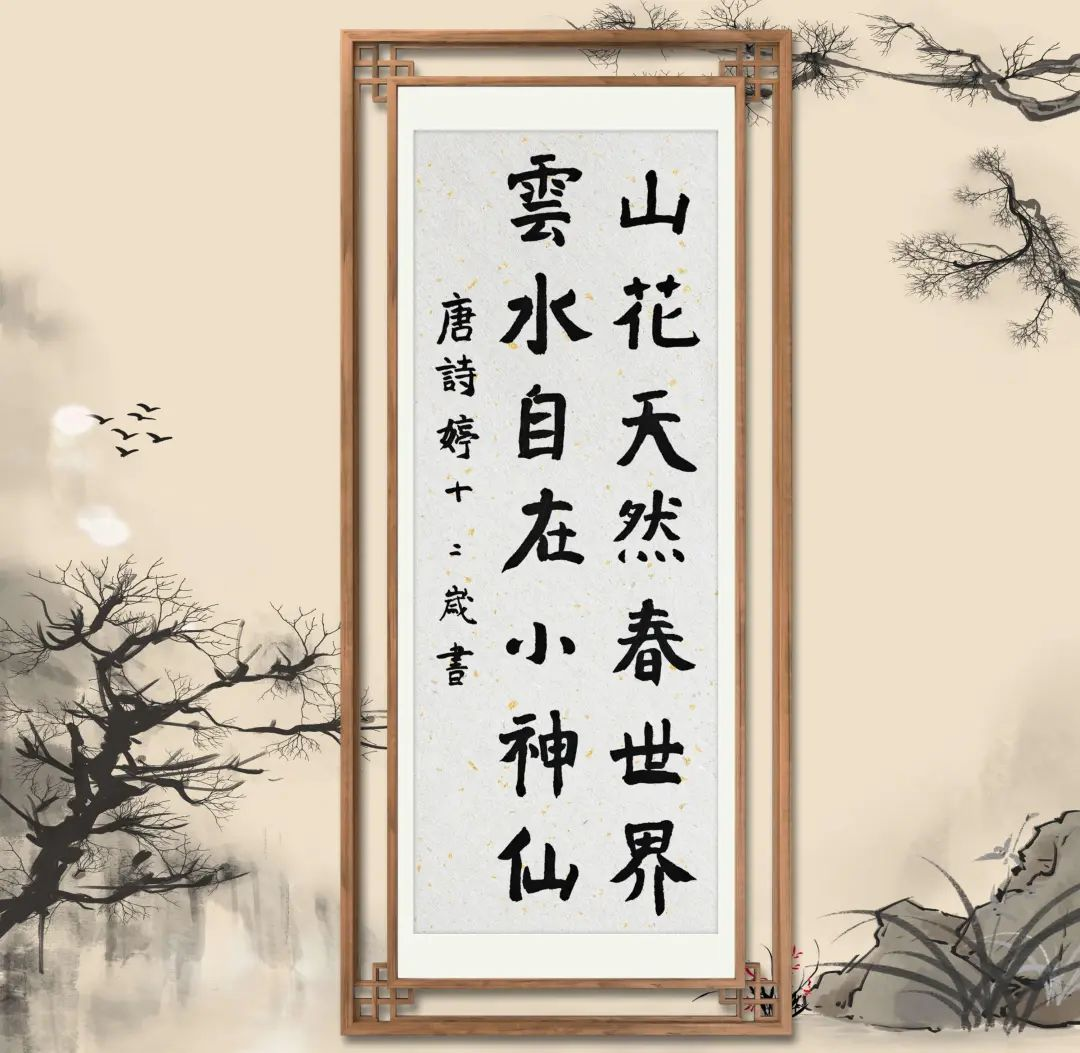 山花天然春世界
雲水自在小神仙
唐詩婷十二歲書